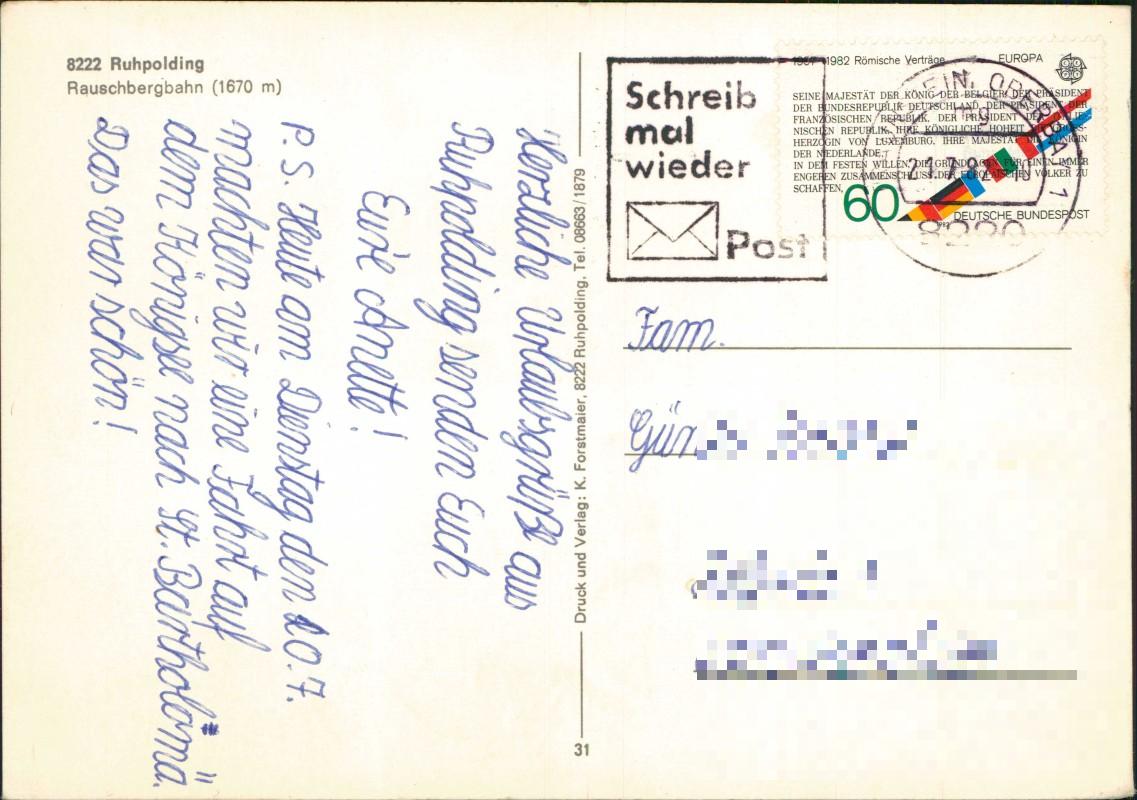 8222 Ruhpolding
Rauschbergbahn (1670 m)
Herzliche Urlaubsgrüße aus
Ruhpolding senden Euch
Eure Anette!
P.S. Heute am Dienstag den 20.7.
machten wir eine Fahrt auf
dem Königsee nach St. Bartholomä.
Das war schön!
Druck und Verlag: K. Forstmaier, 8222 Ruhpolding, Tel. 08663/1879
31
Schreib
mal
wieder
Post
1957-1982 Römische Verträge
EUROPA
SEINE MAJESTÄT DER KÖNIG DER BELGIER, DER PRÄSIDENT
DER BUNDESREPUBLIK DEUTSCHLAND, DER PRÄSIDENT DER
FRANZÖSISCHEN REPUBLIK, DER PRÄSIDENT DER ITALIE-
NISCHEN REPUBLIK, IHRE KÖNIGLICHE HOHEIT DIE GROSS-
HERZOGIN VON LUXEMBURG, IHRE MAJESTÄT DIE KÖNIGIN
DER NIEDERLANDE,
IN DEM FESTEN WILLEN, DIE GRUNDLAGEN FÜR EINEN IMMER
ENGEREN ZUSAMMENSCHLUSS DER EUROPÄISCHEN VÖLKER ZU
SCHAFFEN,
60
DEUTSCHE BUNDESPOST
21.7.82
8220
Fam.